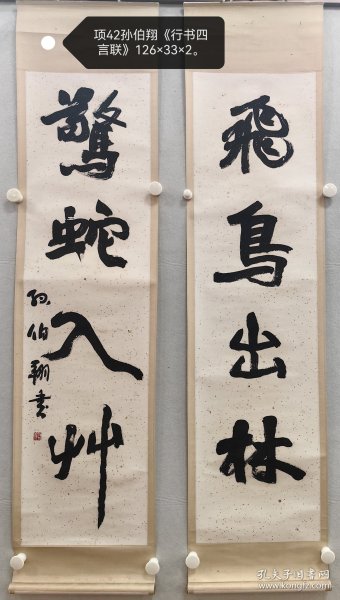 项42孙伯翔《行书四
言联》126×33×2。
飛鳥出林
驚蛇入艸
孙伯翔书
孔夫子旧书网
www.kongfz.com